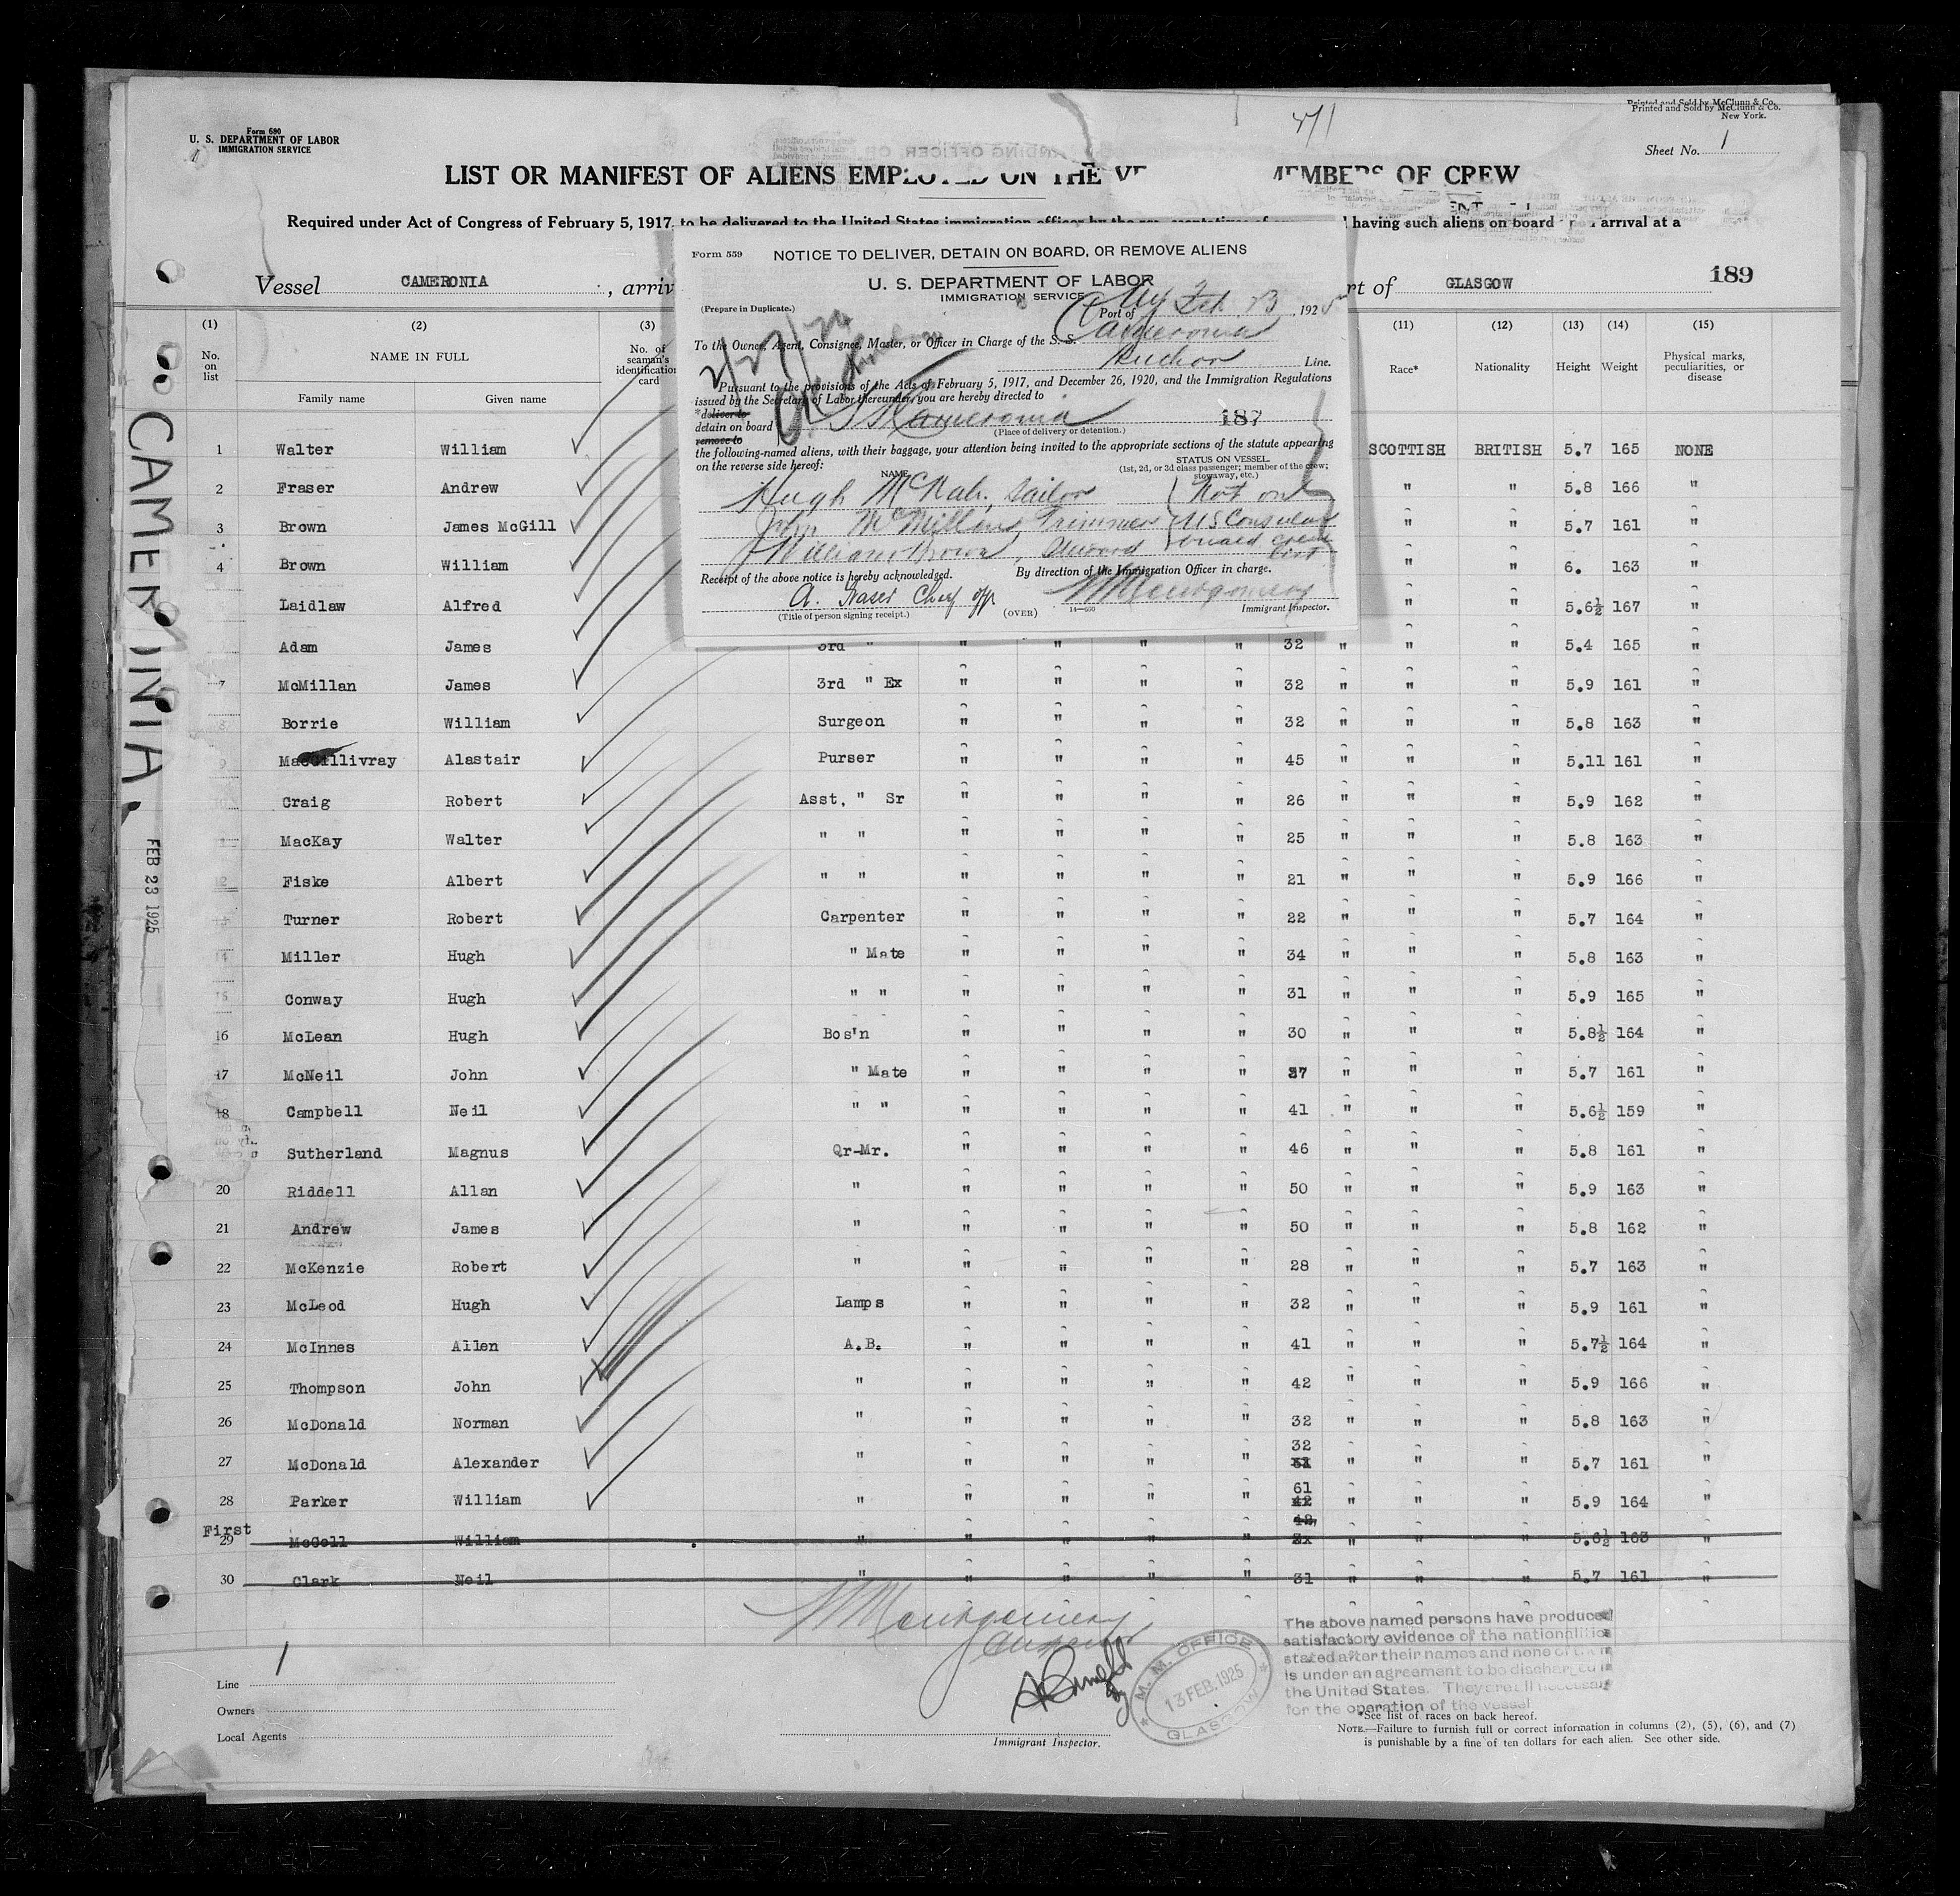 Printed and Sold by McClunn & Co.
New York.
Form 680
U. S. DEPARTMENT OF LABOR
IMMIGRATION SERVICE
Sheet No. 1
LIST OR MANIFEST OF ALIENS EMPLOYED ON THE VE MEMBERS OF CREW
Required under Act of Congress of February 5, 1917, to be delivered to the United States immigration officer by the having such aliens on board arrival at a
Vessel CAMERONIA , arriv rt of GLASGOW 189
Form 559 NOTICE TO DELIVER, DETAIN ON BOARD, OR REMOVE ALIENS
U. S. DEPARTMENT OF LABOR
IMMIGRATION SERVICE
(Prepare in Duplicate.)
Port of NY Feb 23, 1925
To the Owner, Agent, Consignee, Master, or Officer in Charge of the S. S. Cameronia
Anchor Line.
Pursuant to the provisions of the Acts of February 5, 1917, and December 26, 1920, and the Immigration Regulations
issued by the Secretary of Labor thereunder, you are hereby directed to
*deliver to
detain on board SS Cameronia 187
remove to (Place of delivery or detention.)
the following-named aliens, with their baggage, your attention being invited to the appropriate sections of the statute appearing
on the reverse side hereof:
NAME STATUS ON VESSEL
(1st, 2d, or 3d class passenger; member of the crew; stowaway, etc.)
Hugh McNab, Sailor Not on
John McMillan, Trimmer US Consular
William Brown, crew
Receipt of the above notice is hereby acknowledged. By direction of the Immigration Officer in charge.
A. Fraser Chief Offr W Montgomery
(Title of person signing receipt.) (OVER) Immigrant Inspector.
(1) (2) (3) (11) (12) (13) (14) (15)
No. on list NAME IN FULL No. of seaman's identification card Race* Nationality Height Weight Physical marks, peculiarities, or disease
Family name Given name
1 Walter William SCOTTISH BRITISH 5.7 165 NONE
2 Fraser Andrew " " 5.8 166 "
3 Brown James McGill " " 5.7 161 "
4 Brown William " " 6. 163 "
Laidlaw Alfred " " 5.6½ 167 "
Adam James 3rd " " " " " 32 " " " 5.4 165 "
7 McMillan James 3rd " Ex " " " " 32 " " " 5.9 161 "
8 Borrie William Surgeon " " " " 32 " " " 5.8 163 "
9 MacGillivray Alastair Purser " " " " 45 " " " 5.11 161 "
10 Craig Robert Asst. " Sr " " " " 26 " " " 5.9 162 "
MacKay Walter " " " " " " 25 " " " 5.8 163 "
12 Fiske Albert " " " " " " 21 " " " 5.9 166 "
Turner Robert Carpenter " " " " 22 " " " 5.7 164 "
14 Miller Hugh " Mate " " " " 34 " " " 5.8 163 "
15 Conway Hugh " " " " " " 31 " " " 5.9 165 "
16 McLean Hugh Bos'n " " " " 30 " " " 5.8½ 164 "
17 McNeil John " Mate " " " " 37 " " " 5.7 161 "
18 Campbell Neil " " " " " " 41 " " " 5.6½ 159 "
Sutherland Magnus Qr-Mr. " " " " 46 " " " 5.8 161 "
20 Riddell Allan " " " " " 50 " " " 5.9 163 "
21 Andrew James " " " " " 50 " " " 5.8 162 "
22 McKenzie Robert " " " " " 28 " " " 5.7 163 "
23 McLeod Hugh Lamps " " " " 32 " " " 5.9 161 "
24 McInnes Allen A.B. " " " " 41 " " " 5.7½ 164 "
25 Thompson John " " " " " 42 " " " 5.9 166 "
26 McDonald Norman " " " " " 32 " " " 5.8 163 "
27 McDonald Alexander " " " " " 32 " " " 5.7 161 "
28 Parker William " " " " " 61 42 " " " 5.9 164 "
First
29 McColl William " " " " " 42 " " " 5.6½ 163 "
30 Clark Neil " " " " " 31 " " " 5.7 161 "
CAMERONIA.
FEB 23 1925
W Montgomery
The above named persons have produced
satisfactory evidence of the nationalities
stated after their names and none of them
is under an agreement to be discharged in
the United States. They are all necessary
for the operation of the vessel
M. M. OFFICE
13 FEB. 1925
GLASGOW
1
Line
Owners
Local Agents
Immigrant Inspector.
*See list of races on back hereof.
NOTE.—Failure to furnish full or correct information in columns (2), (5), (6), and (7)
is punishable by a fine of ten dollars for each alien. See other side.